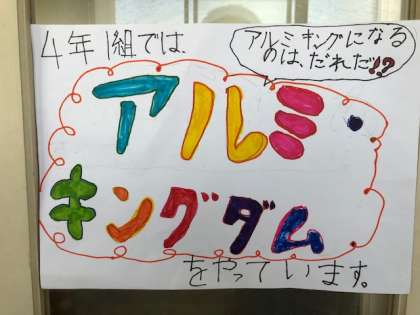 4年1組では、
アルミキングになる
のは、だれだ!?
アルミ
キングダム
をやっています。